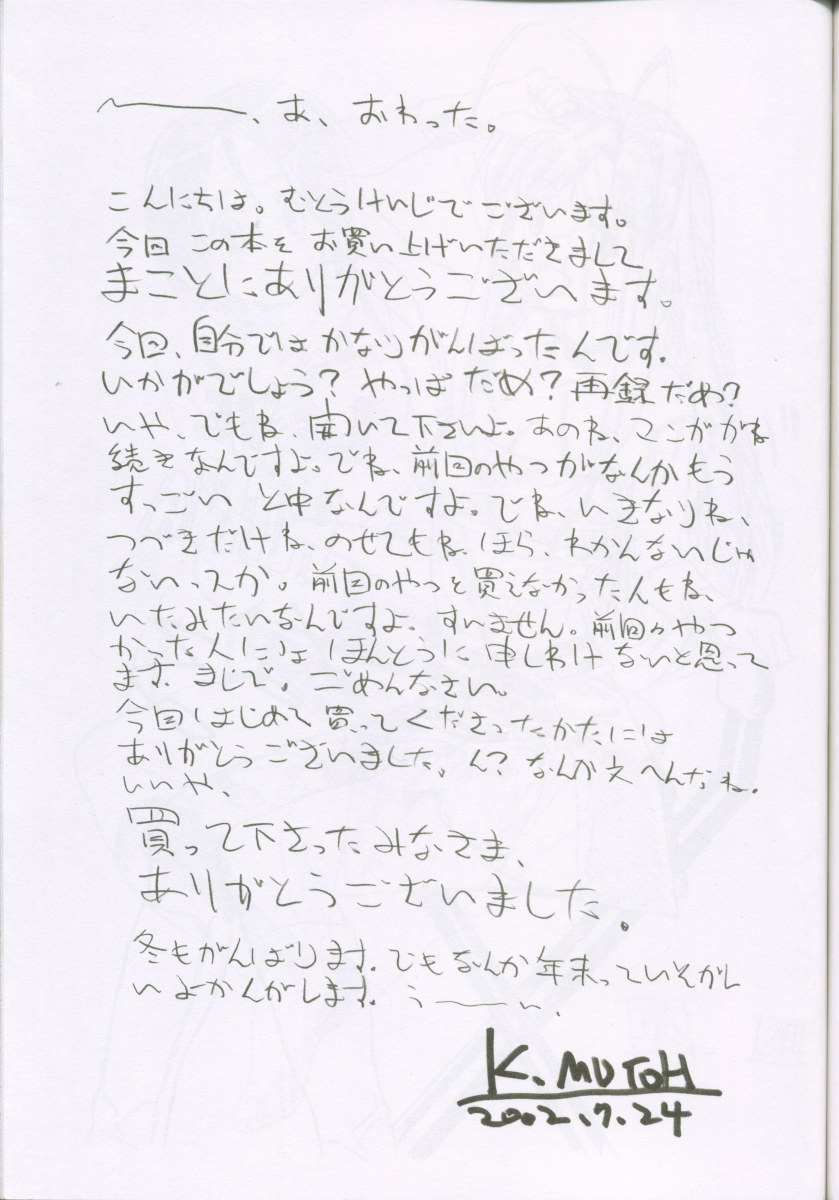 〜、あ、おわった。
こんにちは。むとうけいじでございます。
今回 この本を お買い上げいただきまして
まことにありがとうございます。
今回、自分では かなりがんばったんです。
いかがでしょう？ やっぱ だめ？ 再録だめ？
いや、でもね、聞いて下さいよ。あのね、マンガがね
続きなんですよ。でね、前回のやつがなんかもう
すっごい と中なんですよ。でね、いきなりね、
つづきだけね、のせてもね、ほら、わかんないじゃ
ないっスか。前回のやつを買えなかった人もね、
いたみたいなんですよ。すいません。前回のやつ
かった人には ほんとうに 申しわけないと思って
ます。まじで。ごめんなさい。
今回はじめて買ってくださったかたには
ありがとうございました。ん？なんか文へんだね。
いいや、
買って下さったみなさま、
ありがとうございました。
冬もがんばります。でもなんか年末っていそがし
いよかんがします。うーーい、
K. MUTOH
2002.7.24